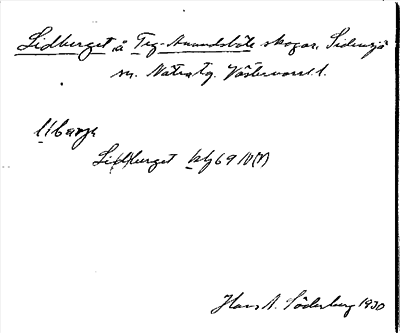 Lidberget å Teg-Anundsböle skogar, Sidensjö
sn. Nätra tg. Västernorrl. l.
Lidberget kbl 69 IV(?)
Hans A. Söderberg 1930